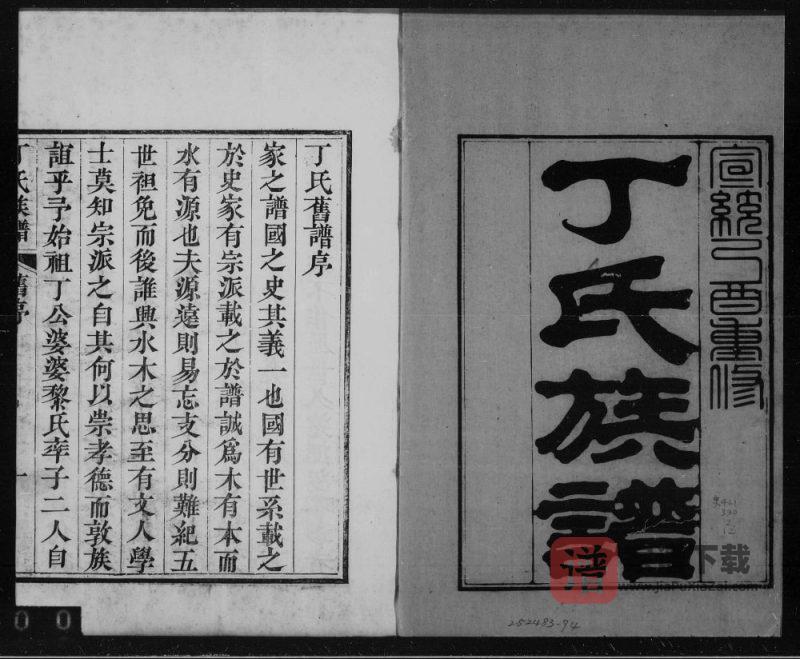 宣統乙酉重修
丁氏族譜
丁氏舊譜序
家之譜國之史其義一也國有世系載之
於史家有宗派載之於譜誠爲木有本而
水有源也夫源遠則易忘支分則難紀五
世袒免而後誰興水木之思至有文人學
士莫知宗派之自其何以崇孝德而敦族
誼乎予始祖丁公婆婆黎氏率子二人自
丁氏族譜 舊序 一
谱 下载
www.jiaPuXiazai.com
252483-94
0 0